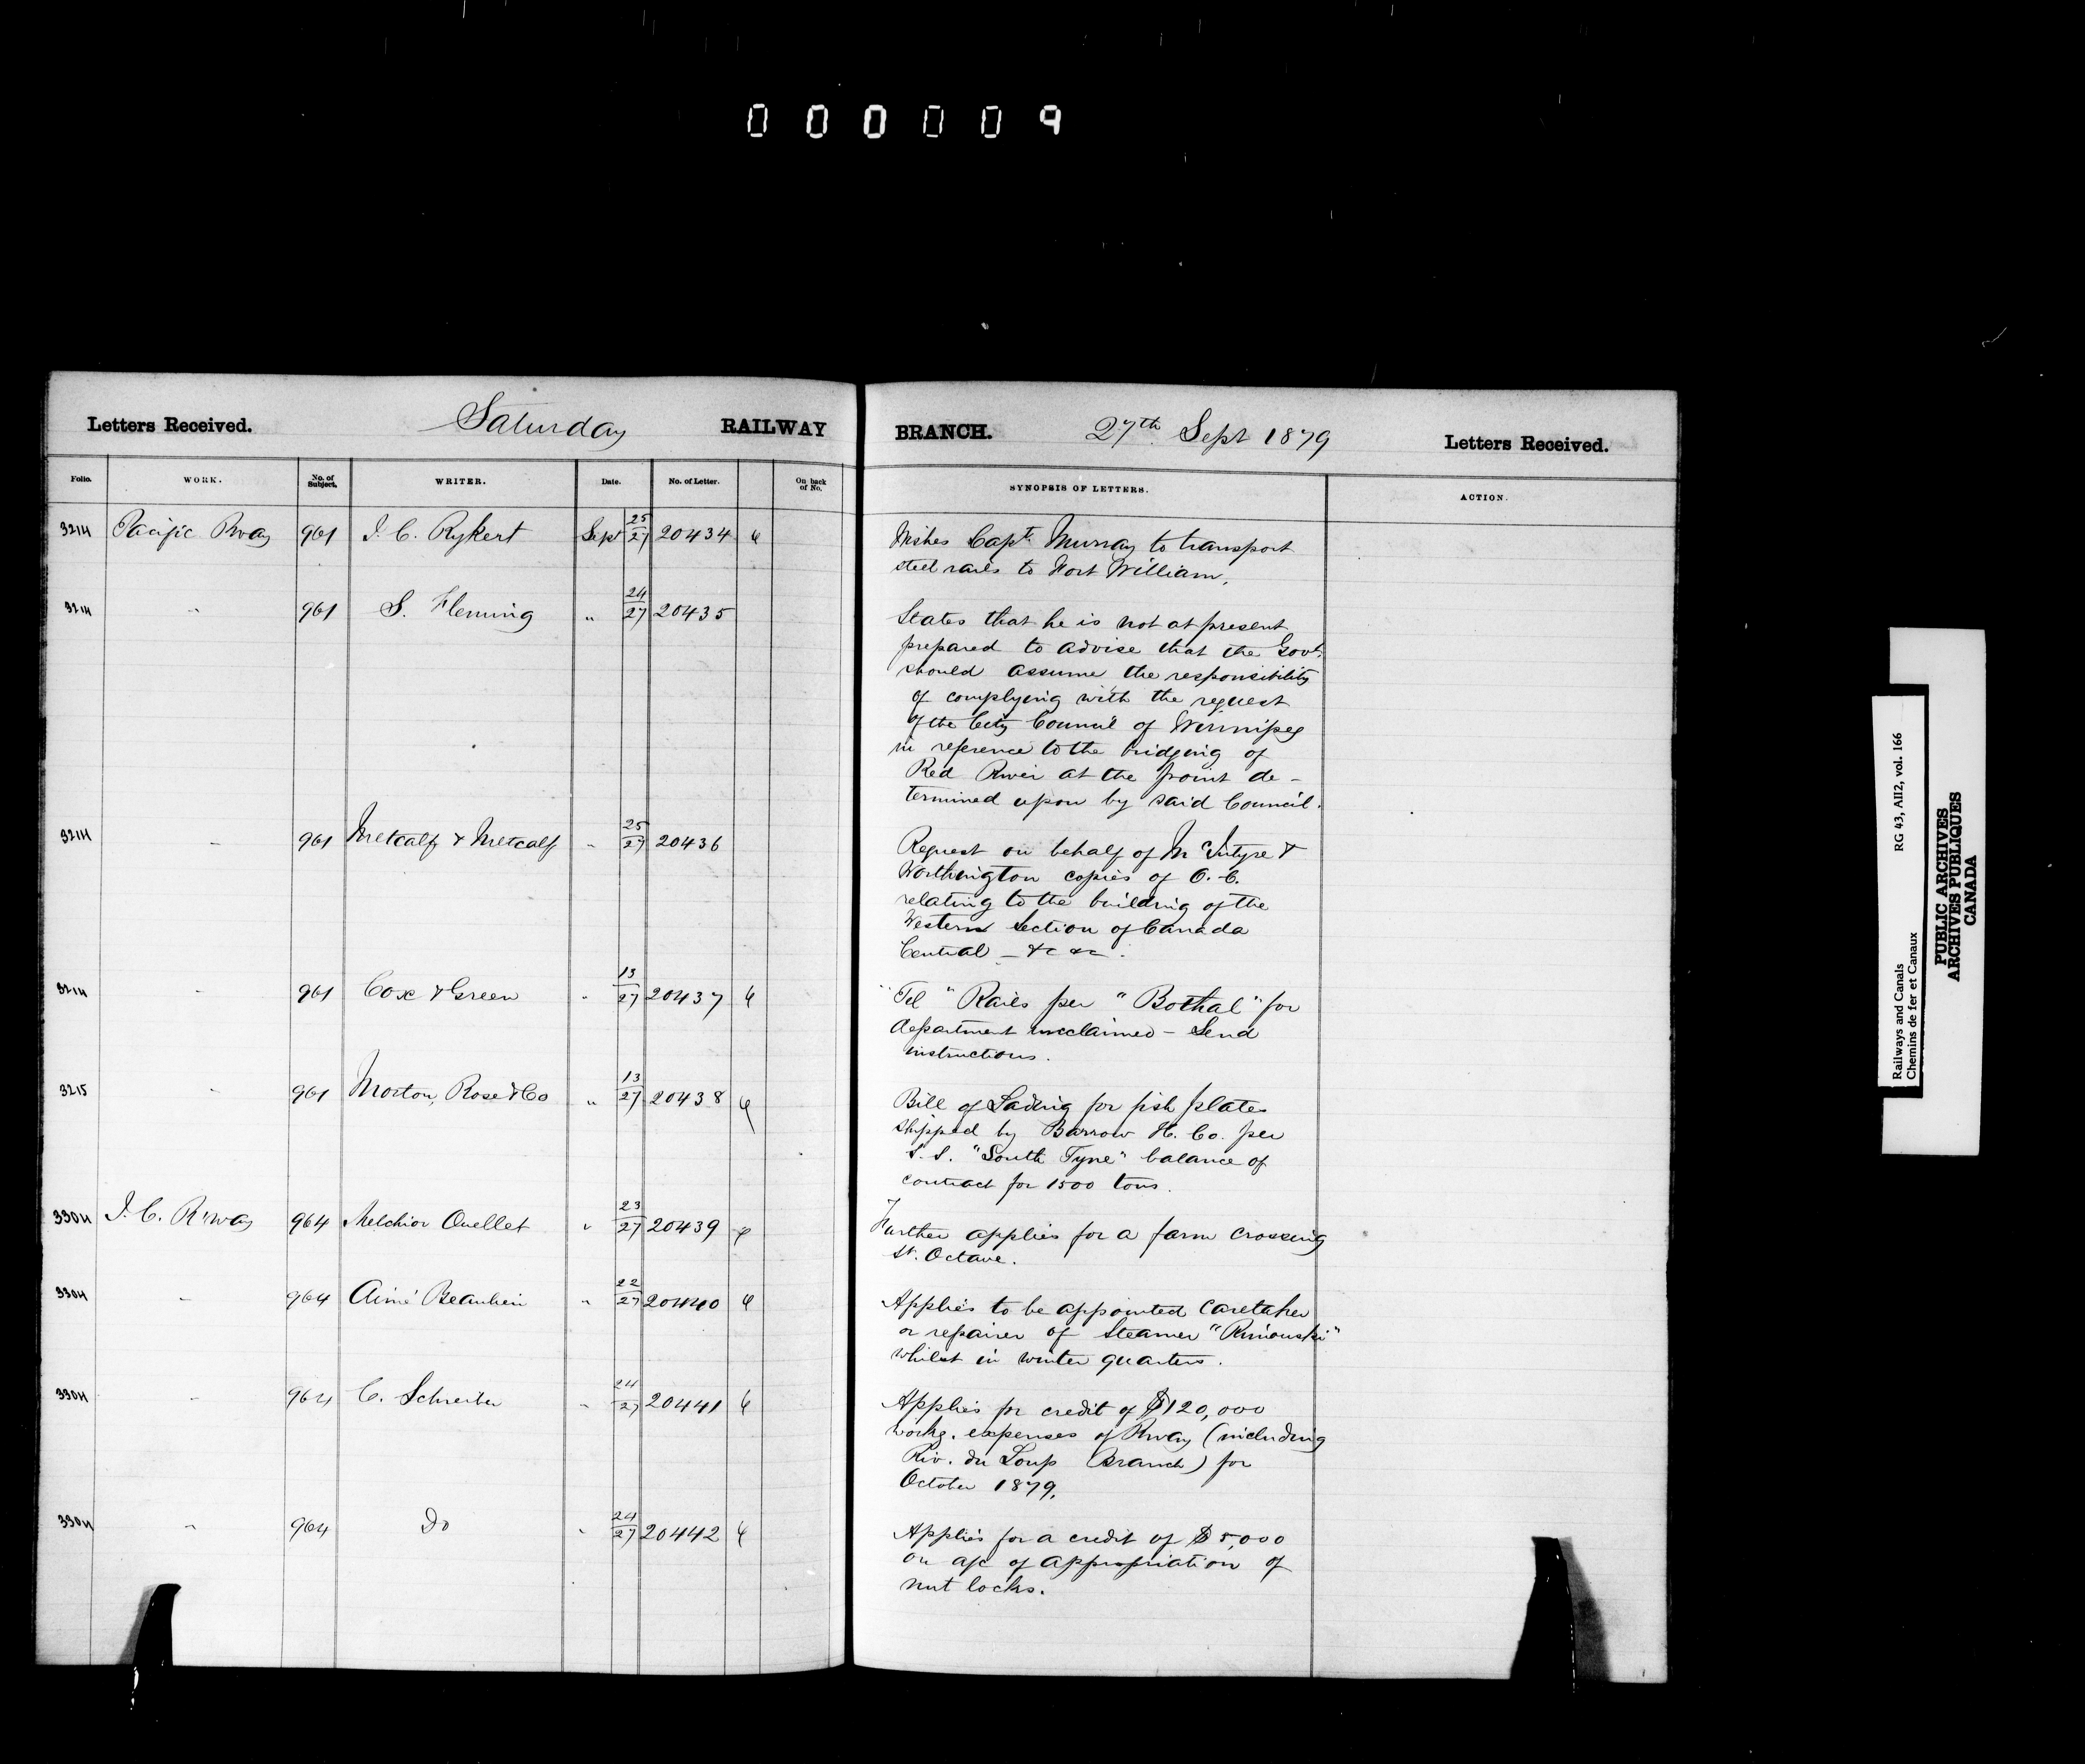 000009
Letters Received. Saturday RAILWAY
Folio. WORK. No. of Subject. WRITER. Date. No. of Letter. On back of No.
3214 Pacific Rway 961 J. C. Rykert Sept 25/27 20434
3214 " 961 S. Fleming " 24/27 20435
3214 " 961 Metcalf & Metcalf " 25/27 20436
3214 961 Cox & Green " 13/27 20437
3215 " 961 Morton, Rose & Co " 13/27 20438
3304 I. C. R'way 964 Melchior Ouellet " 23/27 20439
3304 " 964 Aimé Beaulieu " 22/27 20440
3304 " 964 C. Schreiber " 24/27 20441
3304 " 964 Do " 24/27 20442
BRANCH. 27th Sept 1879 Letters Received.
SYNOPSIS OF LETTERS. ACTION.
Wishes Capt. Murray to transport
steel rails to Fort William.
States that he is not at present
prepared to advise that the Govt.
should assume the responsibility
of complying with the request
of the City Council of Winnipeg
in reference to the bridging of
Red River at the point de-
termined upon by said Council.
Request on behalf of McIntyre &
Worthington copies of O.C.
relating to the building of the
Western Section of Canada
Central - &c &c.
"Tel" Rails per "Bothal" for
department unclaimed - Send
instructions.
Bill of Lading for fish plates
shipped by Barrow H. Co. per
S.S. "South Tyne" balance of
contract for 1500 tons.
Further applies for a farm crossing
St. Octave.
Applies to be appointed caretaker
or repairer of Steamer "Rimouski"
whilst in winter quarters.
Applies for credit of $120,000
workg. expenses of Rway (including
Riv. du Loup Branch) for
October 1879.
Applies for a credit of $5,000
on a/c of appropriation of
nut locks.
RG 43, AII2, vol. 166
Railways and Canals
Chemins de fer et Canaux
PUBLIC ARCHIVES
ARCHIVES PUBLIQUES
CANADA